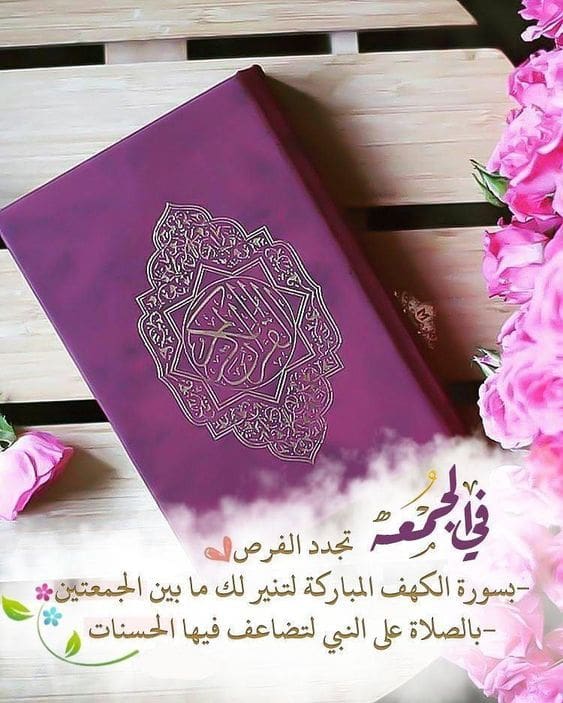 القرآن الكريم
في الجمعه تجدد الفرص
-بسورة الكهف المباركة لتنير لك ما بين الجمعتين
-بالصلاة على النبي لتضاعف فيها الحسنات